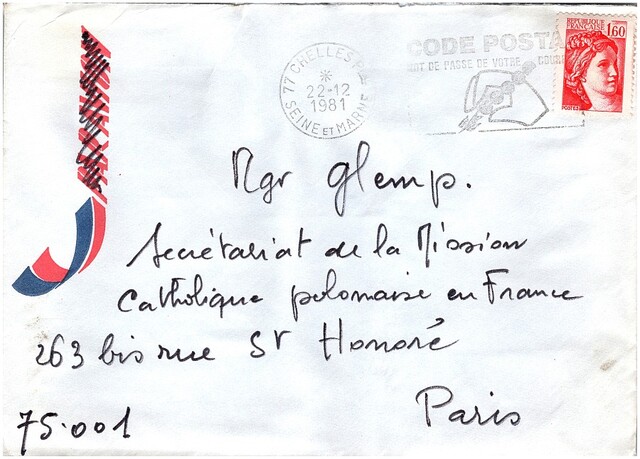 CODE POSTA
MOT DE PASSE DE VOTRE COURR
77 CHELLES Pal
22-12
1981
SEINE ET MARNE
REPUBLIQUE
FRANÇAISE
1,60
POSTES
Mgr Glemp.
Secrétariat de la Mission
Catholique polonaise en France
263 bis rue St Honoré
Paris
75.001